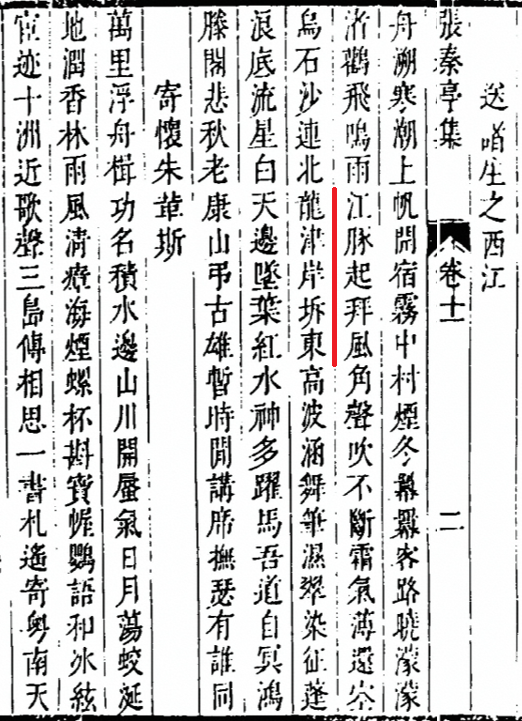 送喈生之西江
張秦亭集 卷十一 二
舟溯寒潮上帆開宿霧中村煙冬羃羃客路曉濛濛
渚鸛飛鳴雨江豚起拜風角聲吹不斷霜氣薄還空
烏石沙連北龍津岸坼東高波涵舞筆濕翠染征蓬
浪底流星白天邊墜葉紅水神多躍馬吾道自冥鴻
滕閣悲秋老康山弔古雄暫時閒講席撫瑟有誰同
寄懷朱葦斯
萬里浮舟楫功名積水邊山川開蜃氣日月蕩蛟涎
地潤香林雨風清瘴海煙螺杯斟寶幄鸚語和氷絃
宦迹十洲近歌聲三島傳相思一書札遙寄粤南天